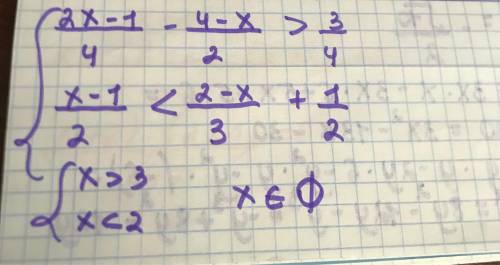 { (2x-1)/4 - (4-x)/2 > 3/4
(x-1)/2 < (2-x)/3 + 1/2
{ x>3
x<2 x∈∅